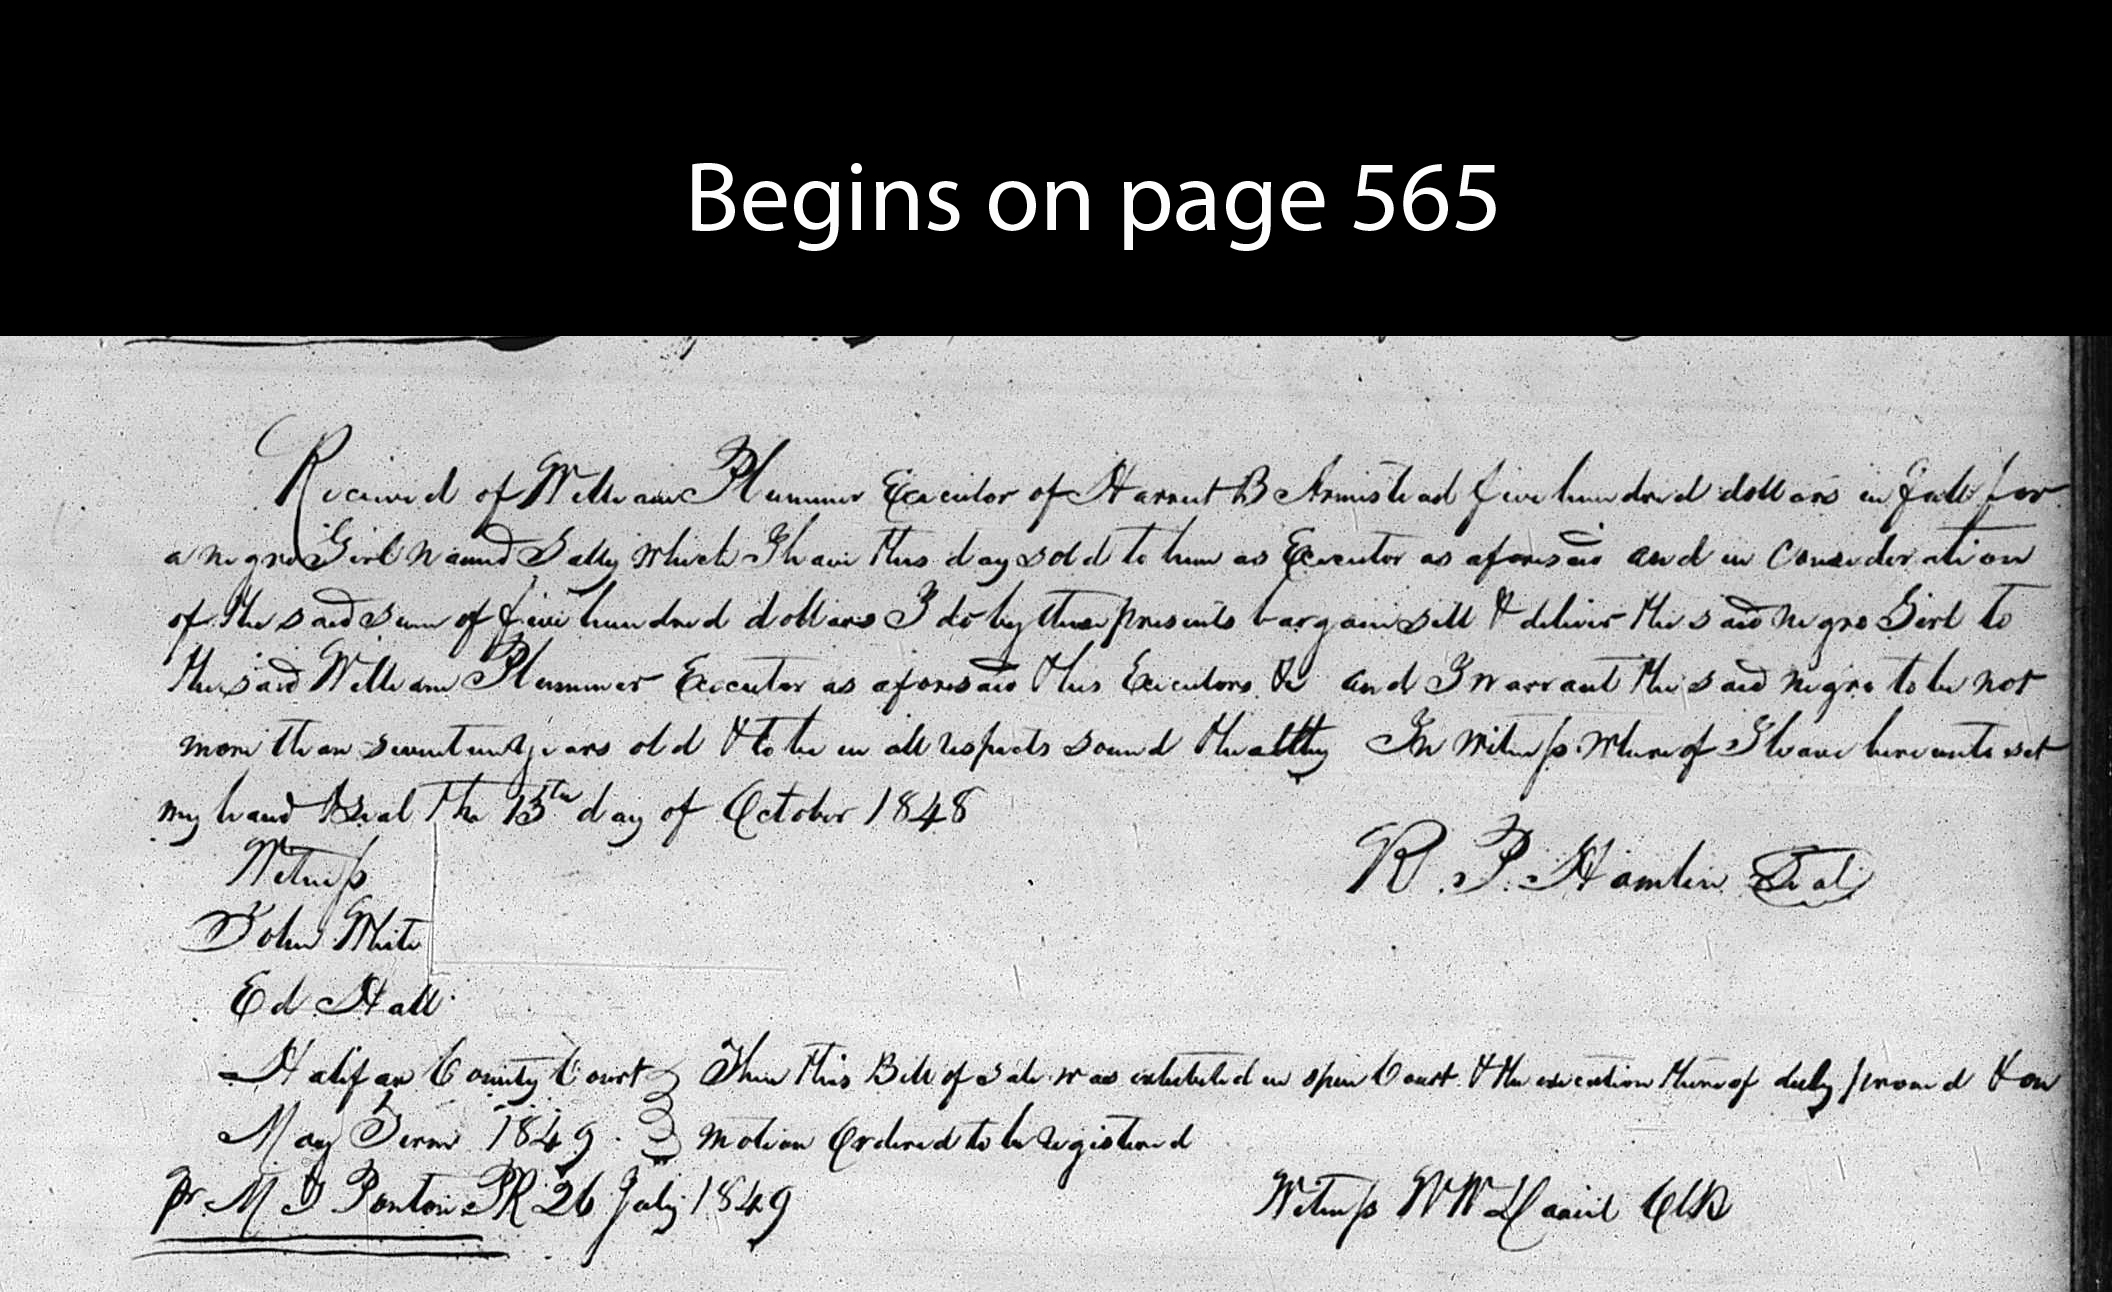 Begins on page 565
Received of William Plummer Executor of Harriet B Armistead five hundred dollars in full for
a negro Girl named Sally which I have this day sold to him as Executor as aforesaid and in Consideration
of the said sum of five hundred dollars I do by these presents bargain sell & deliver the said negro Girl to
the said William Plummer Executor as aforesaid & his Executors &c and I warrant the said negro to be not
more than seventeen years old & to be in all respects sound & healthy In Witness whereof I have hereunto set
my hand & seal the 13th day of October 1848
Witness
R. P. Hamlin Seal
John White
Ed Hall
Halifax County Court } Then this Bill of sale was exhibited in open Court & the execution thereof duly proved & on
May Term 1849. } motion Ordered to be registered
pr. M Ponton PR 26 July 1849
Witness WW Daniel Clk